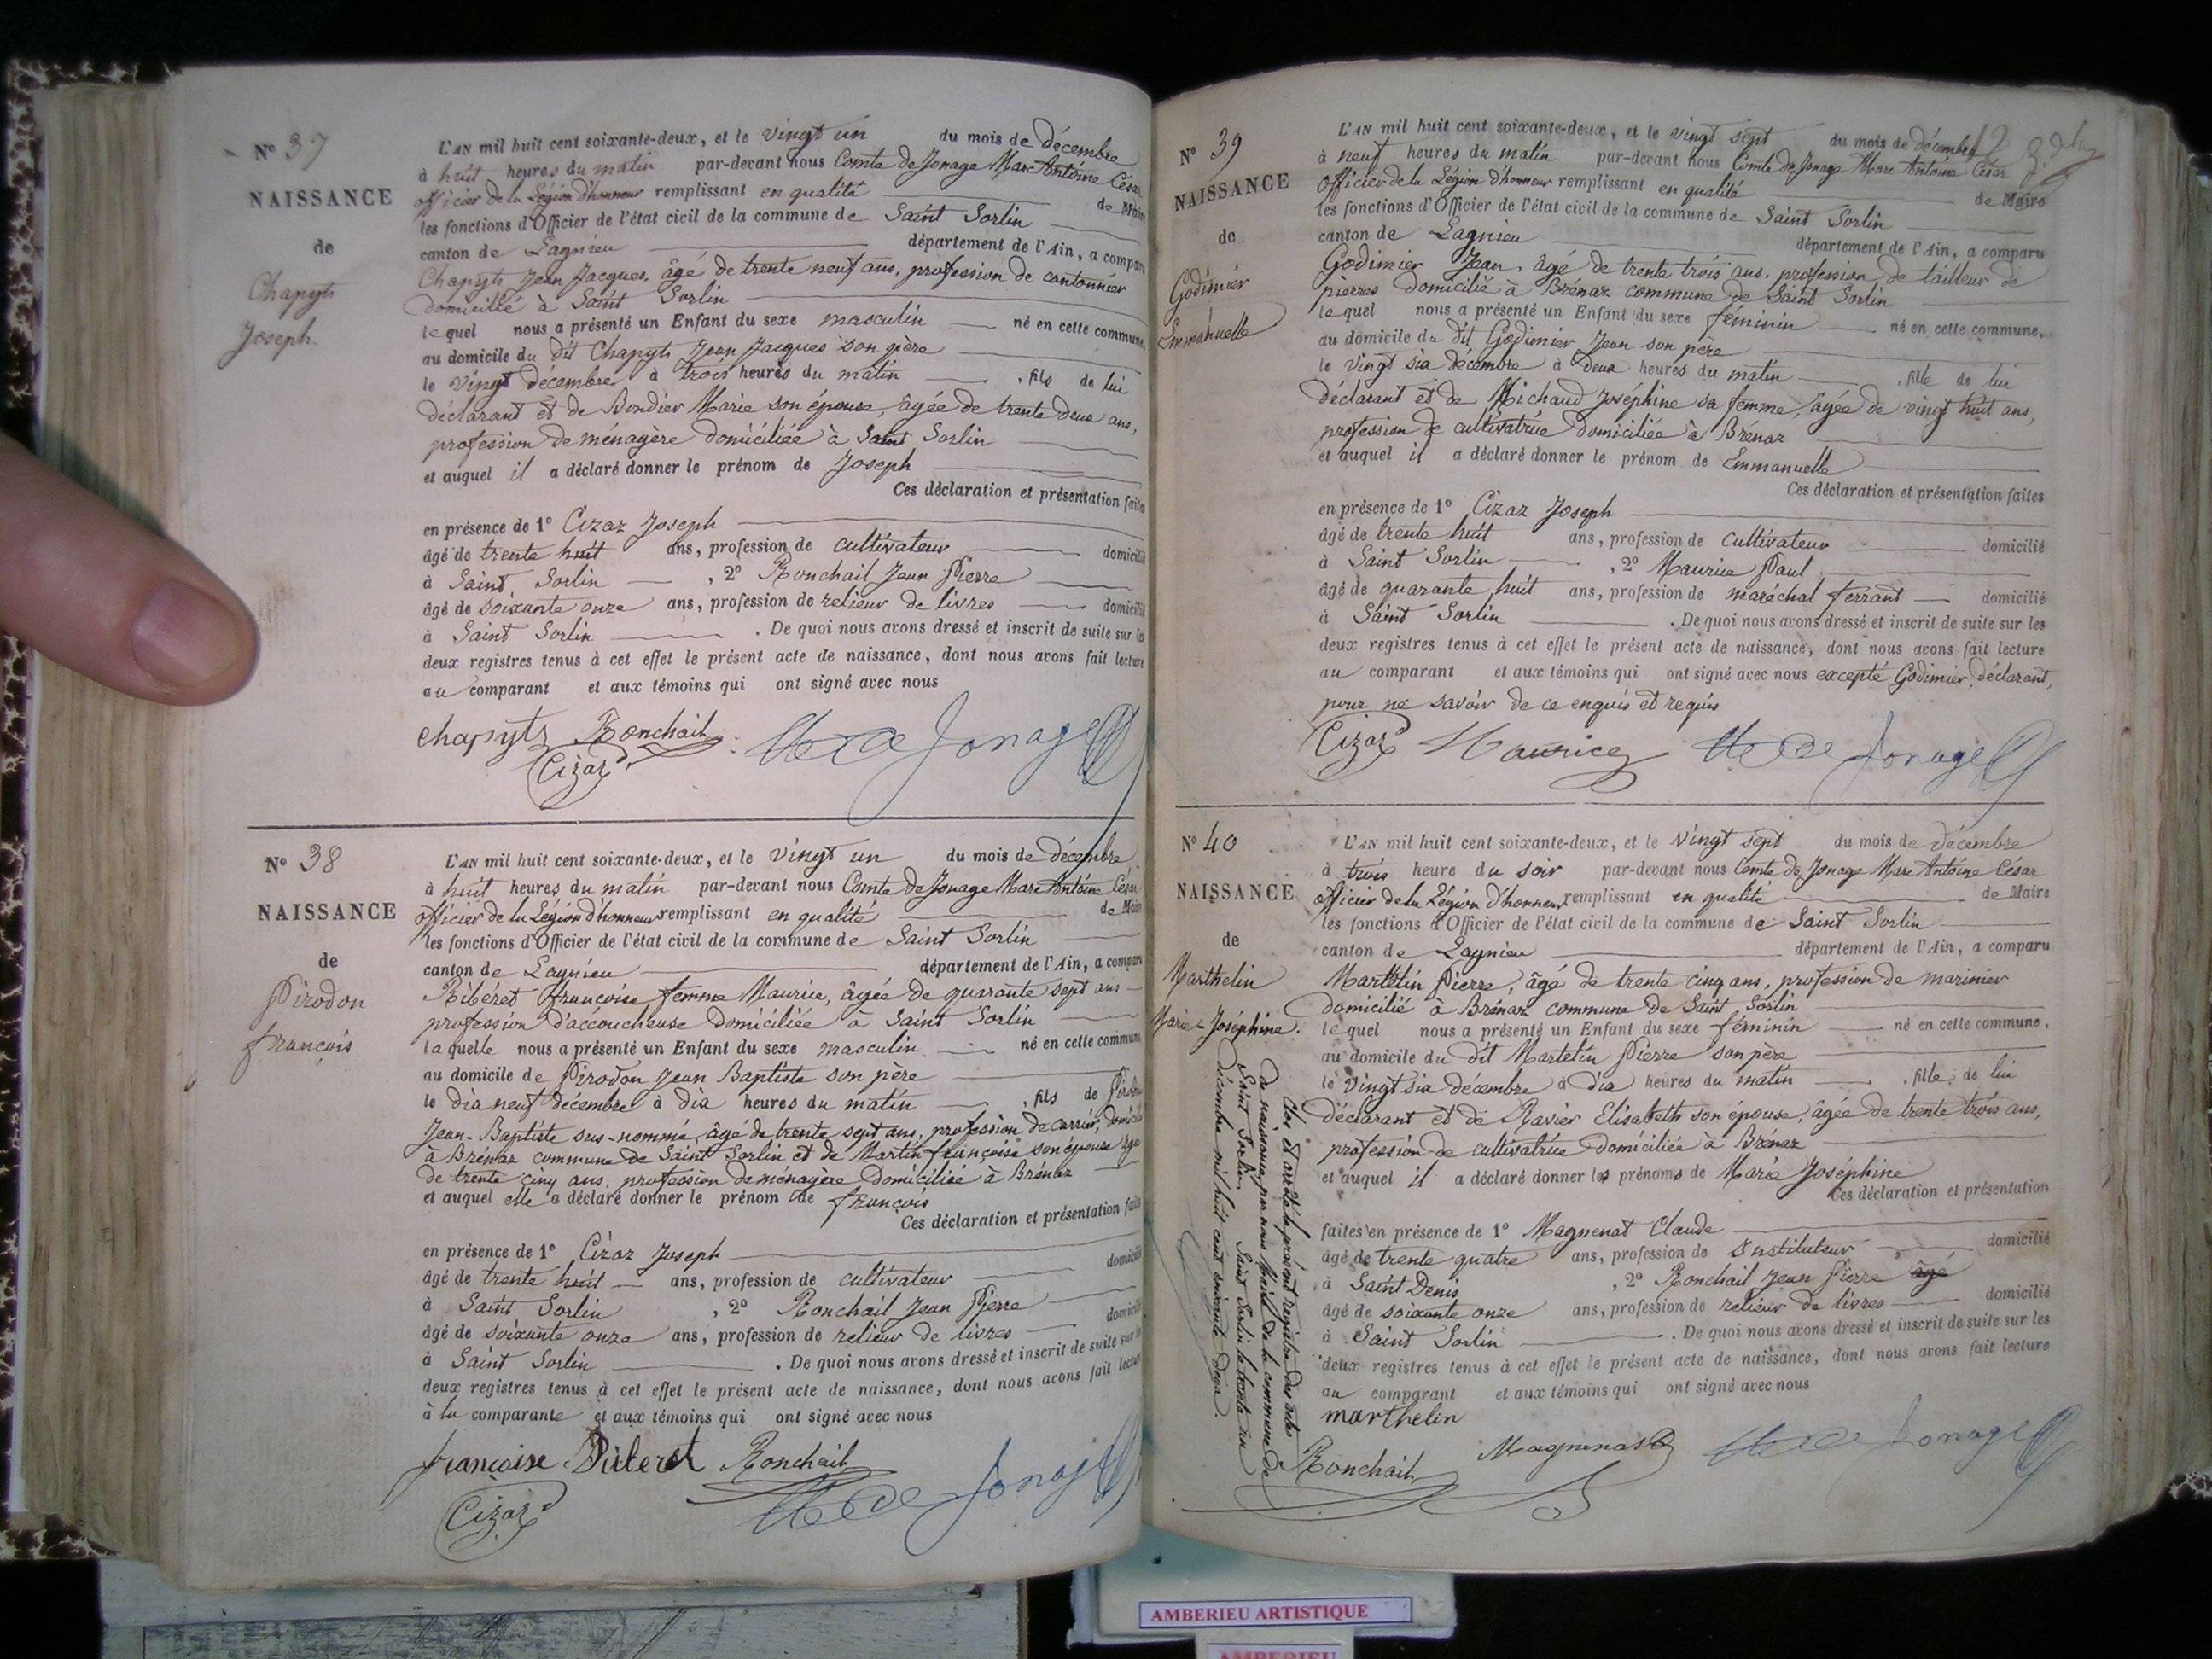 N° 37
NAISSANCE
de
Chapyts
Joseph
L'AN mil huit cent soixante-deux, et le vingt un du mois de décembre
à huit heures du matin par-devant nous Comte de Jonage Marc Antoine César
officier de la Légion d'honneur remplissant en qualité de Maire
les fonctions d'Officier de l'état civil de la commune de Saint Sorlin
canton de Lagnieu département de l'Ain, a comparu
Chapyts Jean Jacques, âgé de trente neuf ans, profession de cantonnier
domicilié à Saint Sorlin
lequel nous a présenté un Enfant du sexe masculin né en cette commune,
au domicile du dit Chapyts Jean Jacques son père
le vingt décembre à trois heures du matin , fils de lui
déclarant et de Bondier Marie son épouse, âgée de trente deux ans,
profession de ménagère domiciliée à Saint Sorlin
et auquel il a déclaré donner le prénom de Joseph
Ces déclaration et présentation faites
en présence de 1° Cizaz Joseph
âgé de trente huit ans, profession de cultivateur domicilié
à Saint Sorlin , 2° Ronchail Jean Pierre
âgé de soixante onze ans, profession de relieur de livres domicilié
à Saint Sorlin . De quoi nous avons dressé et inscrit de suite sur les
deux registres tenus à cet effet le présent acte de naissance, dont nous avons fait lecture
au comparant et aux témoins qui ont signé avec nous
chapyts Ronchail de Jonage
Cizaz
N° 38
NAISSANCE
de
Pirodon
françois
L'AN mil huit cent soixante-deux, et le vingt un du mois de décembre
à huit heures du matin par-devant nous Comte de Jonage Marc Antoine César
officier de la Légion d'honneur remplissant en qualité de Maire
les fonctions d'Officier de l'état civil de la commune de Saint Sorlin
canton de Lagnieu département de l'Ain, a comparu
Ribéret françoise femme Maurice, âgée de quarante sept ans
profession d'accoucheuse domiciliée à Saint Sorlin
laquelle nous a présenté un Enfant du sexe masculin né en cette commune
au domicile de Pirodon Jean Baptiste son père
le dix neuf décembre à dix heures du matin , fils de Pirodon
Jean-Baptiste sus-nommé, âgé de trente sept ans, profession de carrier, domicilié
à Brénaz commune de Saint Sorlin et de Martin françoise son épouse âgée
de trente cinq ans, profession de ménagère domiciliée à Brénaz
et auquel elle a déclaré donner le prénom de françois
Ces déclaration et présentation faites
en présence de 1° Cizaz Joseph
âgé de trente huit ans, profession de cultivateur domicilié
à Saint Sorlin , 2° Ronchail Jean Pierre
âgé de soixante onze ans, profession de relieur de livres domicilié
à Saint Sorlin . De quoi nous avons dressé et inscrit de suite sur les
deux registres tenus à cet effet le présent acte de naissance, dont nous avons fait lecture
à la comparante et aux témoins qui ont signé avec nous
françoise Riberet Ronchail
Cizaz de Jonage
N° 39
NAISSANCE
de
Godimier
Emmanuelle
L'AN mil huit cent soixante-deux, et le vingt sept du mois de décembre
à neuf heures du matin par-devant nous Comte de Jonage Marc Antoine César
officier de la Légion d'honneur remplissant en qualité de Maire
les fonctions d'Officier de l'état civil de la commune de Saint Sorlin
canton de Lagnieu département de l'Ain, a comparu
Godimier Jean, âgé de trente trois ans, profession de tailleur de
pierres domicilié à Brénaz commune de Saint Sorlin
lequel nous a présenté un Enfant du sexe féminin né en cette commune,
au domicile du dit Godimier Jean son père
le vingt six décembre à deux heures du matin , fille de lui
déclarant et de Michaud Joséphine sa femme, âgée de vingt huit ans,
profession de cultivatrice domiciliée à Brénaz
et auquel il a déclaré donner le prénom de Emmanuelle
Ces déclaration et présentation faites
en présence de 1° Cizaz Joseph
âgé de trente huit ans, profession de cultivateur domicilié
à Saint Sorlin , 2° Maurice Paul
âgé de quarante huit ans, profession de maréchal ferrant domicilié
à Saint Sorlin . De quoi nous avons dressé et inscrit de suite sur les
deux registres tenus à cet effet le présent acte de naissance, dont nous avons fait lecture
au comparant et aux témoins qui ont signé avec nous excepté Godimier, déclarant,
pour ne savoir de ce enquis et requis
Cizaz Maurice de Jonage
N° 40
NAISSANCE
de
Marthelin
Marie-Joséphine.
L'AN mil huit cent soixante-deux, et le vingt sept du mois de décembre
à trois heure du soir par-devant nous Comte de Jonage Marc Antoine César
officier de la Légion d'honneur remplissant en qualité de Maire
les fonctions d'Officier de l'état civil de la commune de Saint Sorlin
canton de Lagnieu département de l'Ain, a comparu
Martelin Pierre, âgé de trente cinq ans, profession de marinier
domicilié à Brénaz commune de Saint Sorlin
lequel nous a présenté un Enfant du sexe féminin né en cette commune,
au domicile du dit Martelin Pierre son père
le vingt six décembre à dix heures du matin , fille de lui
déclarant et de Ravier Elisabeth son épouse, âgée de trente trois ans,
profession de cultivatrice domiciliée à Brénaz
et auquel il a déclaré donner les prénoms de Marie Joséphine
Ces déclaration et présentation
faites en présence de 1° Magnenat Claude
âgé de trente quatre ans, profession de Instituteur domicilié
à Saint Denis , 2° Ronchail Jean Pierre âgé
âgé de soixante onze ans, profession de relieur de livres domicilié
à Saint Sorlin . De quoi nous avons dressé et inscrit de suite sur les
deux registres tenus à cet effet le présent acte de naissance, dont nous avons fait lecture
au comparant et aux témoins qui ont signé avec nous
marthelin
Ronchail Magnenat de Jonage
Clos et arrêté le présent registre des actes
de naissance, par nous Maire de la commune de
Saint Sorlin. Saint Sorlin le trente un
décembre mil huit cent soixante deux.
AMBERIEU ARTISTIQUE
AMBERIEU